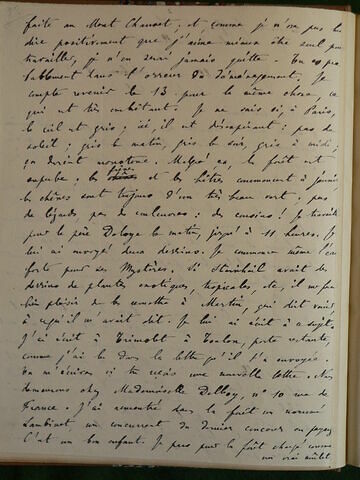 faite au Mont Chauvet ; et comme je n'ose pas lui
dire positivement que j'aime mieux être seul pour
travailler, je n'en serai jamais quitte. Tu es pro
bablement dans l'horreur du déménagement. Je
compte revenir le 13 pour la même chose, ce
qui est très embêtant. Je ne sais si, à Paris,
le ciel est gris ; ici, il est désespérant : pas de
soleil ; gris le matin, gris le soir, gris à midi ;
ça devient monotone. Malgré ça, la forêt est
superbe ; les hêtres commencent à jaunir
les chênes sont toujours d'un très beau vert ; pas
de lézards pas de couleuvres : des cousins ! Je travaille
pour le père Deloye le matin, jusqu'à 11 heures. Je
lui ai envoyé deux dessins. Je commence même l'eau
forte pour ses Mystères. Si Steinheil avait des
dessins de plantes exotiques, tropicales, etc, il me fe
bien plaisir de les remettre à Martin, qui doit venir
à ce qu'il m'avait dit. Je lui ai écrit à ce sujet.
J'ai écrit à Trimolet à Toulon, poste restante,
comme j'ai lu dans la lettre qu'il t'a envoyée.
Tu m'écriras si tu reçois une nouvelle lettre. Nous
demeurons chez Mademoiselle Delloy, n° 10 rue de
France. J'ai rencontré dans la forêt un nommé
Lambinet, un concurrent du dernier concours en paysage
C'est un bon enfant. Je pars pour la forêt chargé comme
un vrai mulet